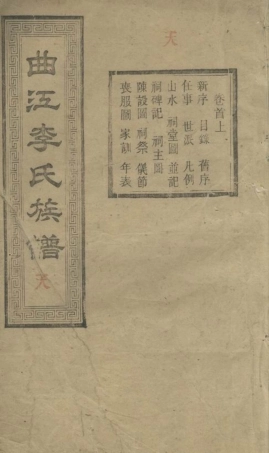 天
卷首上
新序 目錄 舊序
任事 世派 凡例
山水 祠堂圖 並記
祠碑記 祠主圖
陳設圖 祠祭 儀節
喪服圖 家訓 年表
曲江李氏族譜
天